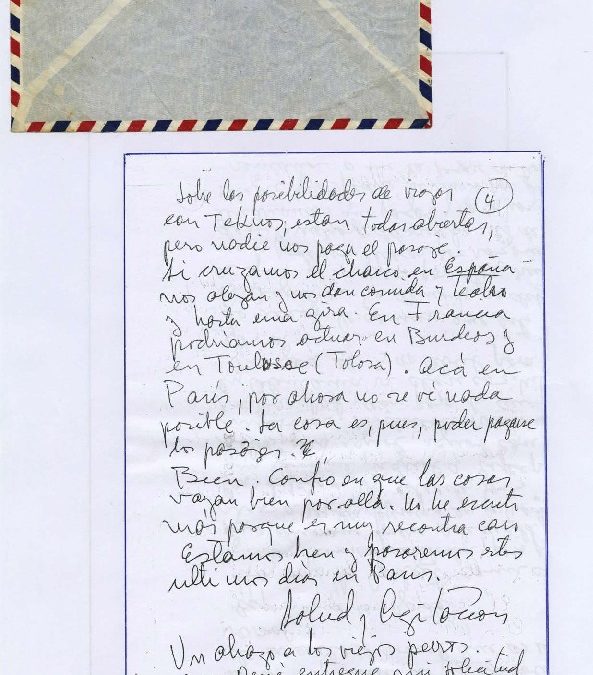 4
Sobre las posibilidades de viajar
con Teknos, estan todas abiertas,
pero nadie nos paga el pasaje.
Si cruzamos el charco en España
nos alojan y nos dan comida y teatro
y hasta una gira. En Francia
podríamos actuar en Burdeos y
en Toulouse (Tolosa). Acá en
París, por ahora no se ve nada
posible. La cosa es, pues, poder pagarse
los pasajes.
Bien. Confío en que las cosas
vayan bien por allá. No he escrito
más porque es muy recontra caro
Estamos bien y pasaremos estos
ultimos días en París.
Salud y Agitación
Un abrazo a los viejos perros.
entregue mi solicitud